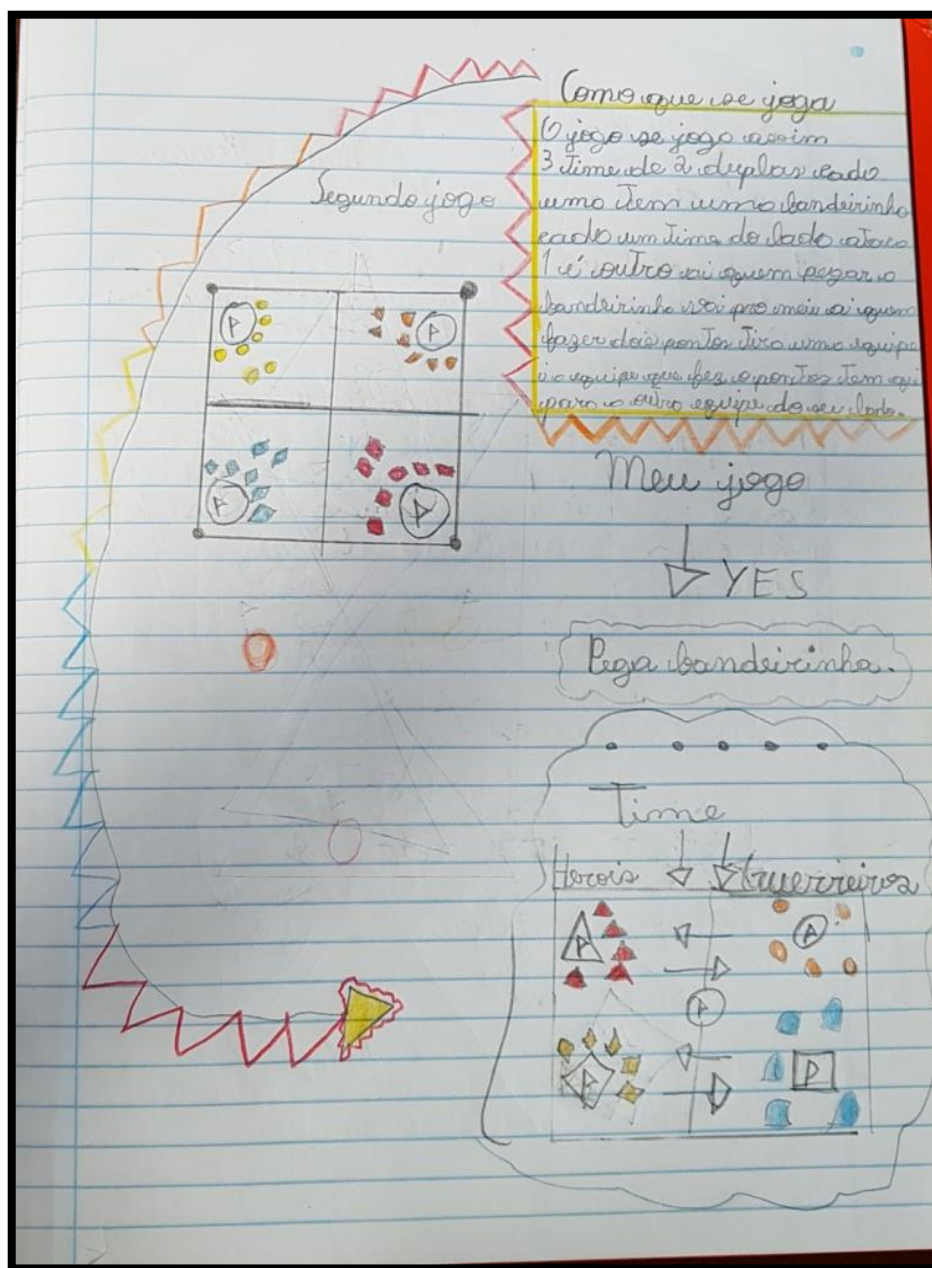 Como que se joga
O jogo se jogo assim
3 Time de 2 duplas cado
umo Tem umo bandeirinho
cado um Time do lado ataco
1 é outro ai quem pegar o
bandeirinho vai pro meio ai quem
fazer dois pontos Tiro umo equipe
i o equipe que fez o pontos Tem qui
para o outro equipe do seu lado.
Segundo jogo
P P
P P
Meu jogo
YES
Pega bandeirinha.
Time
Herois Guerreiros
P P
P
P P